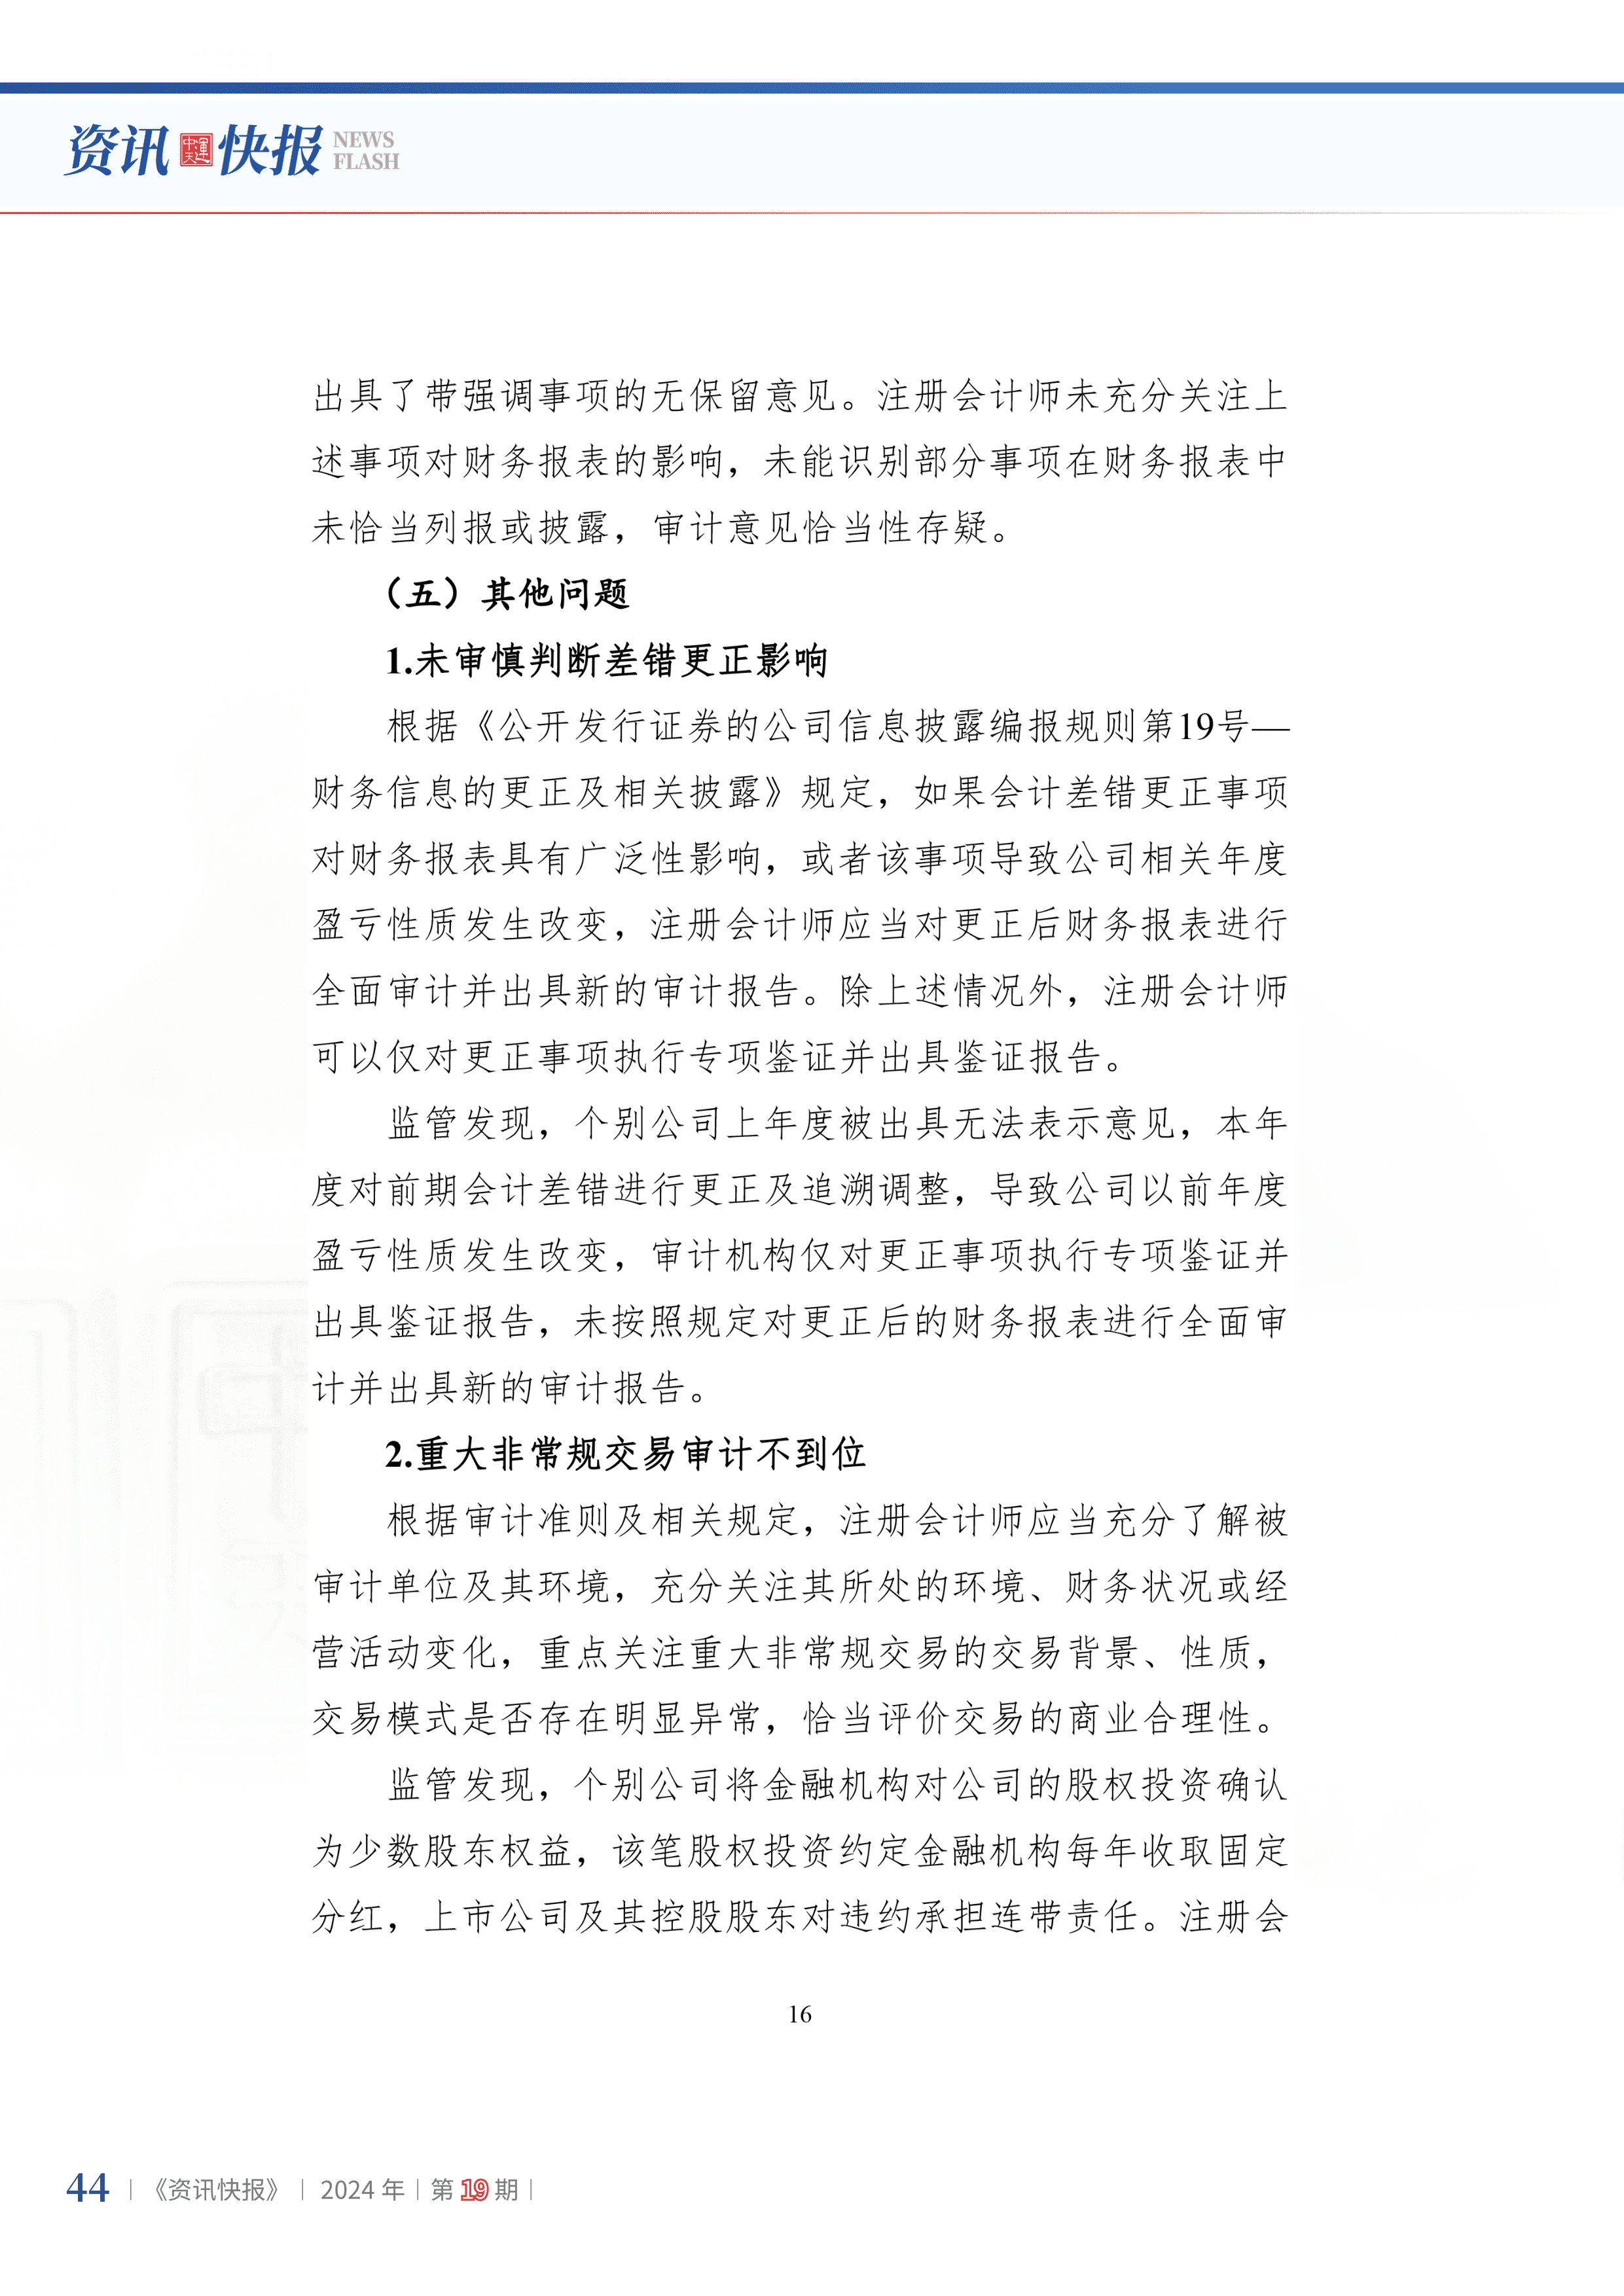 资讯 中天運 快报 NEWS FLASH
出具了带强调事项的无保留意见。注册会计师未充分关注上
述事项对财务报表的影响，未能识别部分事项在财务报表中
未恰当列报或披露，审计意见恰当性存疑。
（五）其他问题
1.未审慎判断差错更正影响
根据《公开发行证券的公司信息披露编报规则第19号—
财务信息的更正及相关披露》规定，如果会计差错更正事项
对财务报表具有广泛性影响，或者该事项导致公司相关年度
盈亏性质发生改变，注册会计师应当对更正后财务报表进行
全面审计并出具新的审计报告。除上述情况外，注册会计师
可以仅对更正事项执行专项鉴证并出具鉴证报告。
监管发现，个别公司上年度被出具无法表示意见，本年
度对前期会计差错进行更正及追溯调整，导致公司以前年度
盈亏性质发生改变，审计机构仅对更正事项执行专项鉴证并
出具鉴证报告，未按照规定对更正后的财务报表进行全面审
计并出具新的审计报告。
2.重大非常规交易审计不到位
根据审计准则及相关规定，注册会计师应当充分了解被
审计单位及其环境，充分关注其所处的环境、财务状况或经
营活动变化，重点关注重大非常规交易的交易背景、性质，
交易模式是否存在明显异常，恰当评价交易的商业合理性。
监管发现，个别公司将金融机构对公司的股权投资确认
为少数股东权益，该笔股权投资约定金融机构每年收取固定
分红，上市公司及其控股股东对违约承担连带责任。注册会
16
44 | 《资讯快报》 | 2024 年 | 第 19 期 |